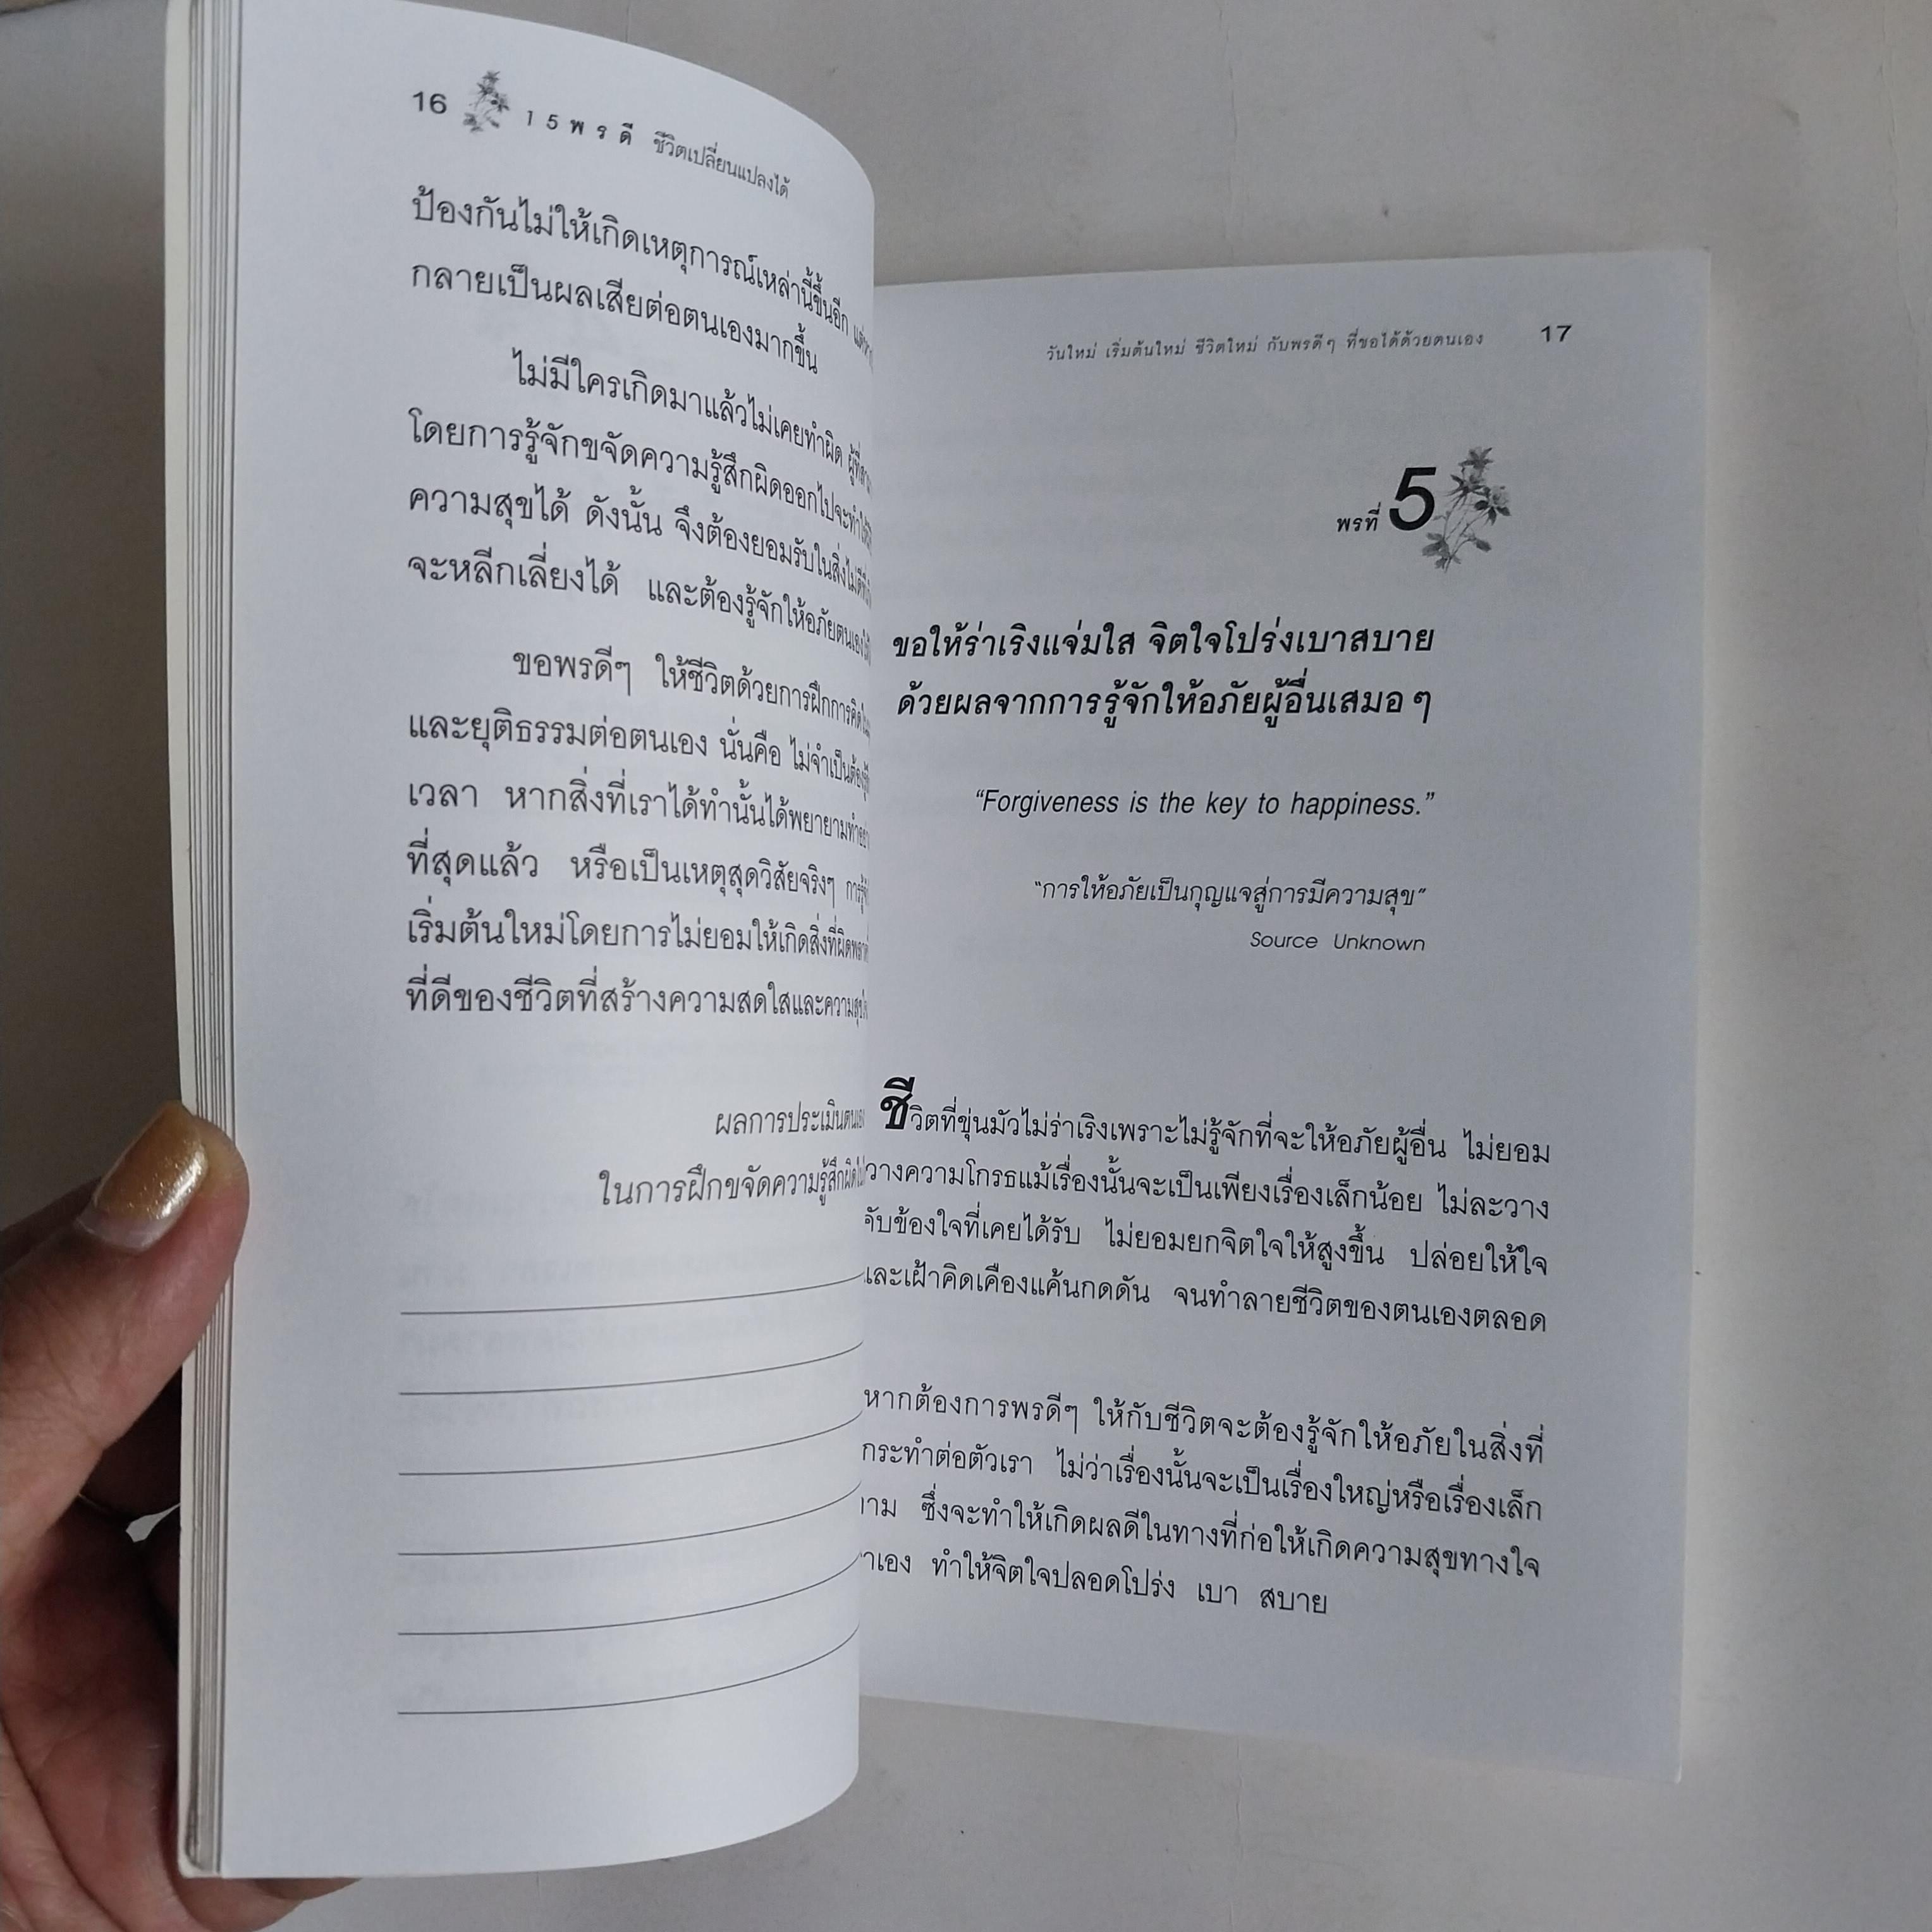 16 15พรดี ชีวิตเปลี่ยนแปลงได้
ป้องกันไม่ให้เกิดเหตุการณ์เหล่านี้ขึ้นอีก
กลายเป็นผลเสียต่อตนเองมากขึ้น
ไม่มีใครเกิดมาแล้วไม่เคยทำผิด
โดยการรู้จักขจัดความรู้สึกผิดออกไปจะทำ
ความสุขได้ ดังนั้น จึงต้องยอมรับในสิ่งไม่ดี
จะหลีกเลี่ยงได้ และต้องรู้จักให้อภัยตนเอง
ขอพรดีๆ ให้ชีวิตด้วยการฝึกการคิด
และยุติธรรมต่อตนเอง นั่นคือ ไม่จำเป็นต้อง
เวลา หากสิ่งที่เราได้ทำนั้นได้พยายามทำ
ที่สุดแล้ว หรือเป็นเหตุสุดวิสัยจริงๆ
เริ่มต้นใหม่โดยการไม่ยอมให้เกิดสิ่งที่ผิด
ที่ดีของชีวิตที่สร้างความสดใสและความสุข
ผลการประเมินตนเอง
ในการฝึกขจัดความรู้สึกผิด
วันใหม่ เริ่มต้นใหม่ ชีวิตใหม่ กับพรดีๆ ที่ขอได้ด้วยตนเอง 17
พรที่ 5
ขอให้ร่าเริงแจ่มใส จิตใจโปร่งเบาสบาย
ด้วยผลจากการรู้จักให้อภัยผู้อื่นเสมอๆ
“Forgiveness is the key to happiness.”
“การให้อภัยเป็นกุญแจสู่การมีความสุข”
Source Unknown
ชีวิตที่ขุ่นมัวไม่ร่าเริงเพราะไม่รู้จักที่จะให้อภัยผู้อื่น ไม่ยอม
วางความโกรธแม้เรื่องนั้นจะเป็นเพียงเรื่องเล็กน้อย ไม่ละวาง
ข้องใจที่เคยได้รับ ไม่ยอมยกจิตใจให้สูงขึ้น ปล่อยให้ใจ
และเฝ้าคิดเคืองแค้นกดดัน จนทำลายชีวิตของตนเองตลอด
หากต้องการพรดีๆ ให้กับชีวิตจะต้องรู้จักให้อภัยในสิ่งที่
กระทำต่อตัวเรา ไม่ว่าเรื่องนั้นจะเป็นเรื่องใหญ่หรือเรื่องเล็ก
ซึ่งจะทำให้เกิดผลดีในทางที่ก่อให้เกิดความสุขทางใจ
เอง ทำให้จิตใจปลอดโปร่ง เบา สบาย